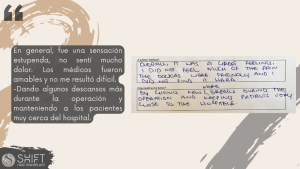 En general, fue una sensación
estupenda, no sentí mucho
dolor. Los médicos fueron
amables y no me resultó difícil.
-Dando algunos descansos más
durante la operación y
manteniendo a los pacientes
muy cerca del hospital.
OVERALL IT WAS A GREAT FEELING.
I DID NOT FEEL MUCH OF THE PAIN
THE DOCTORS WERE FRIENDLY AND I
DID NOT FIND IT HARD
BY GIVING FEW BREAKS DURING THE
OPERATION AND KEEPING PATIENTS VERY
CLOSE TO THE
SHIFT